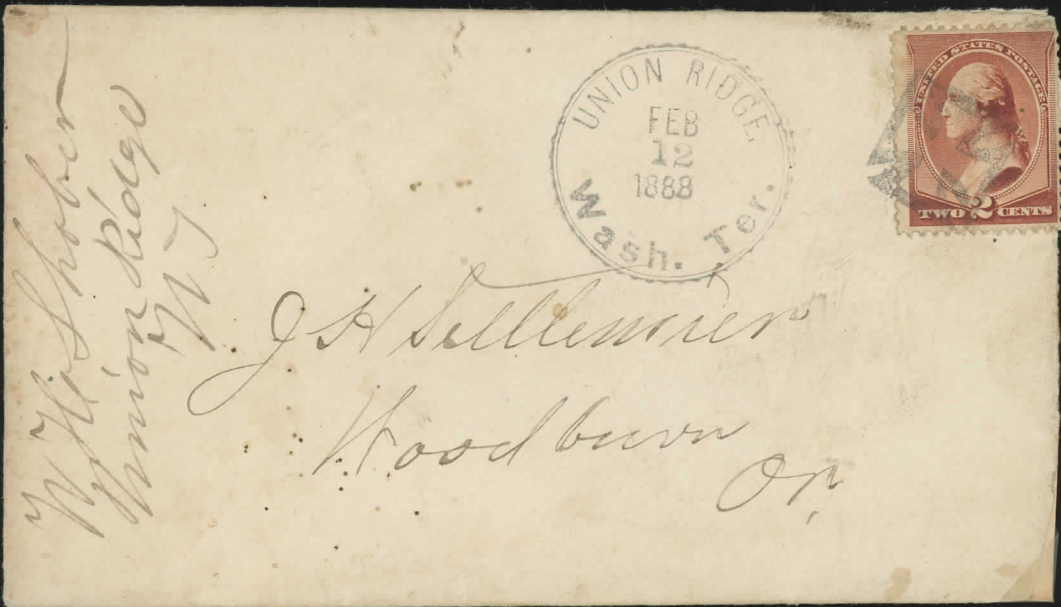 W H Shobert
Union Ridge
W T
UNION RIDGE,
FEB
12
1888
Wash. Ter.
UNITED STATES POSTAGE
TWO 2 CENTS
J H Settlemier
Woodburn
Or,